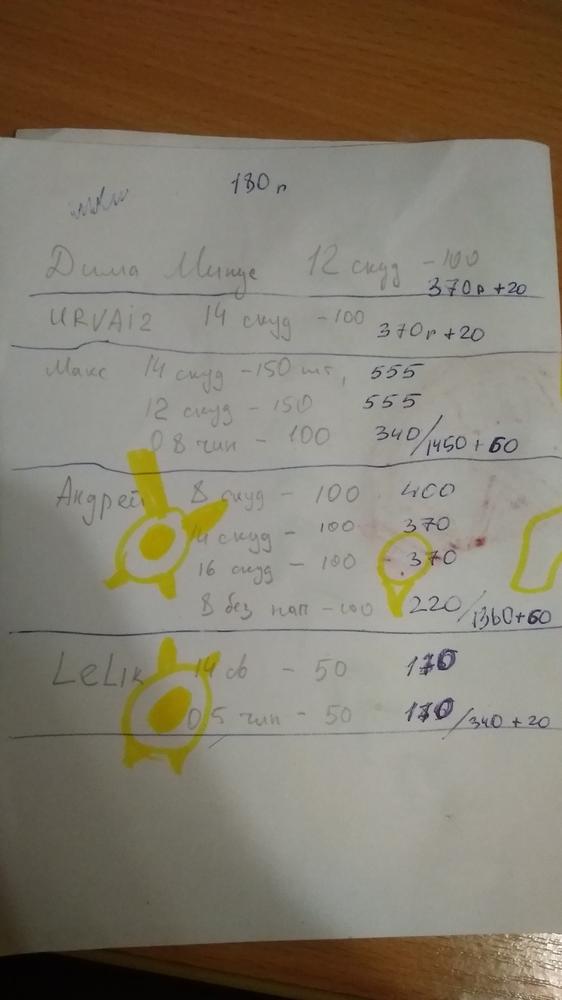 180 г
Дима Минус 12 скуд - 100
370 г + 20
URVAi2 14 скуд - 100 370 г + 20
Макс 14 скуд - 150 шт, 555
12 скуд - 150 555
0 8 чип - 100 340/1450 + 60
Андрей 8 скуд - 100 400
14 скуд - 100 370
16 скуд - 100 370
8 без нап - 100 220/1360+60
LeLik 14 сб - 50 170
0,5 чип - 50 170/340 + 20